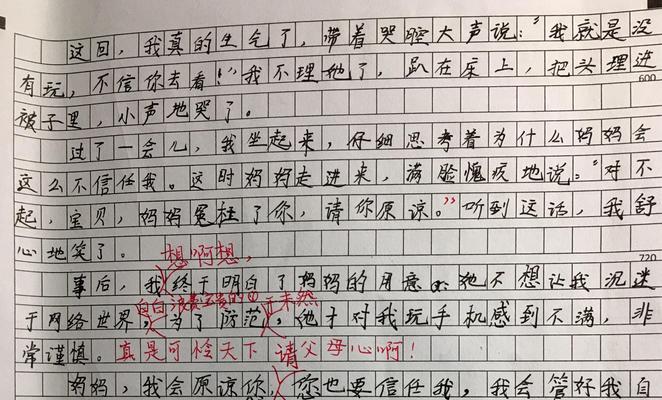 这回，我真的生气了，带着哭腔大声说：“我就是没
有玩，不信你去看！”我不理她了，趴在床上，把头埋进
600
被子里，小声地哭了。
过了一会儿，我坐起来，仔细思考着为什么妈妈会
这么不信任我。这时妈妈走进来，满脸愧疚地说：“对不
起，宝贝，妈妈冤枉了你，请你原谅。”听到这话，我舒
心地笑了。
想啊想，
720
事后，我终于明白了妈妈的用意：她不想让我沉迷
白白浪费宝贵的
于未然
于网络世界，为了防范，她才对我玩手机感到不满，非
常谨慎。真是可怜天下父母心啊！
妈妈，我会原谅你，您也要信任我，我会管好我自